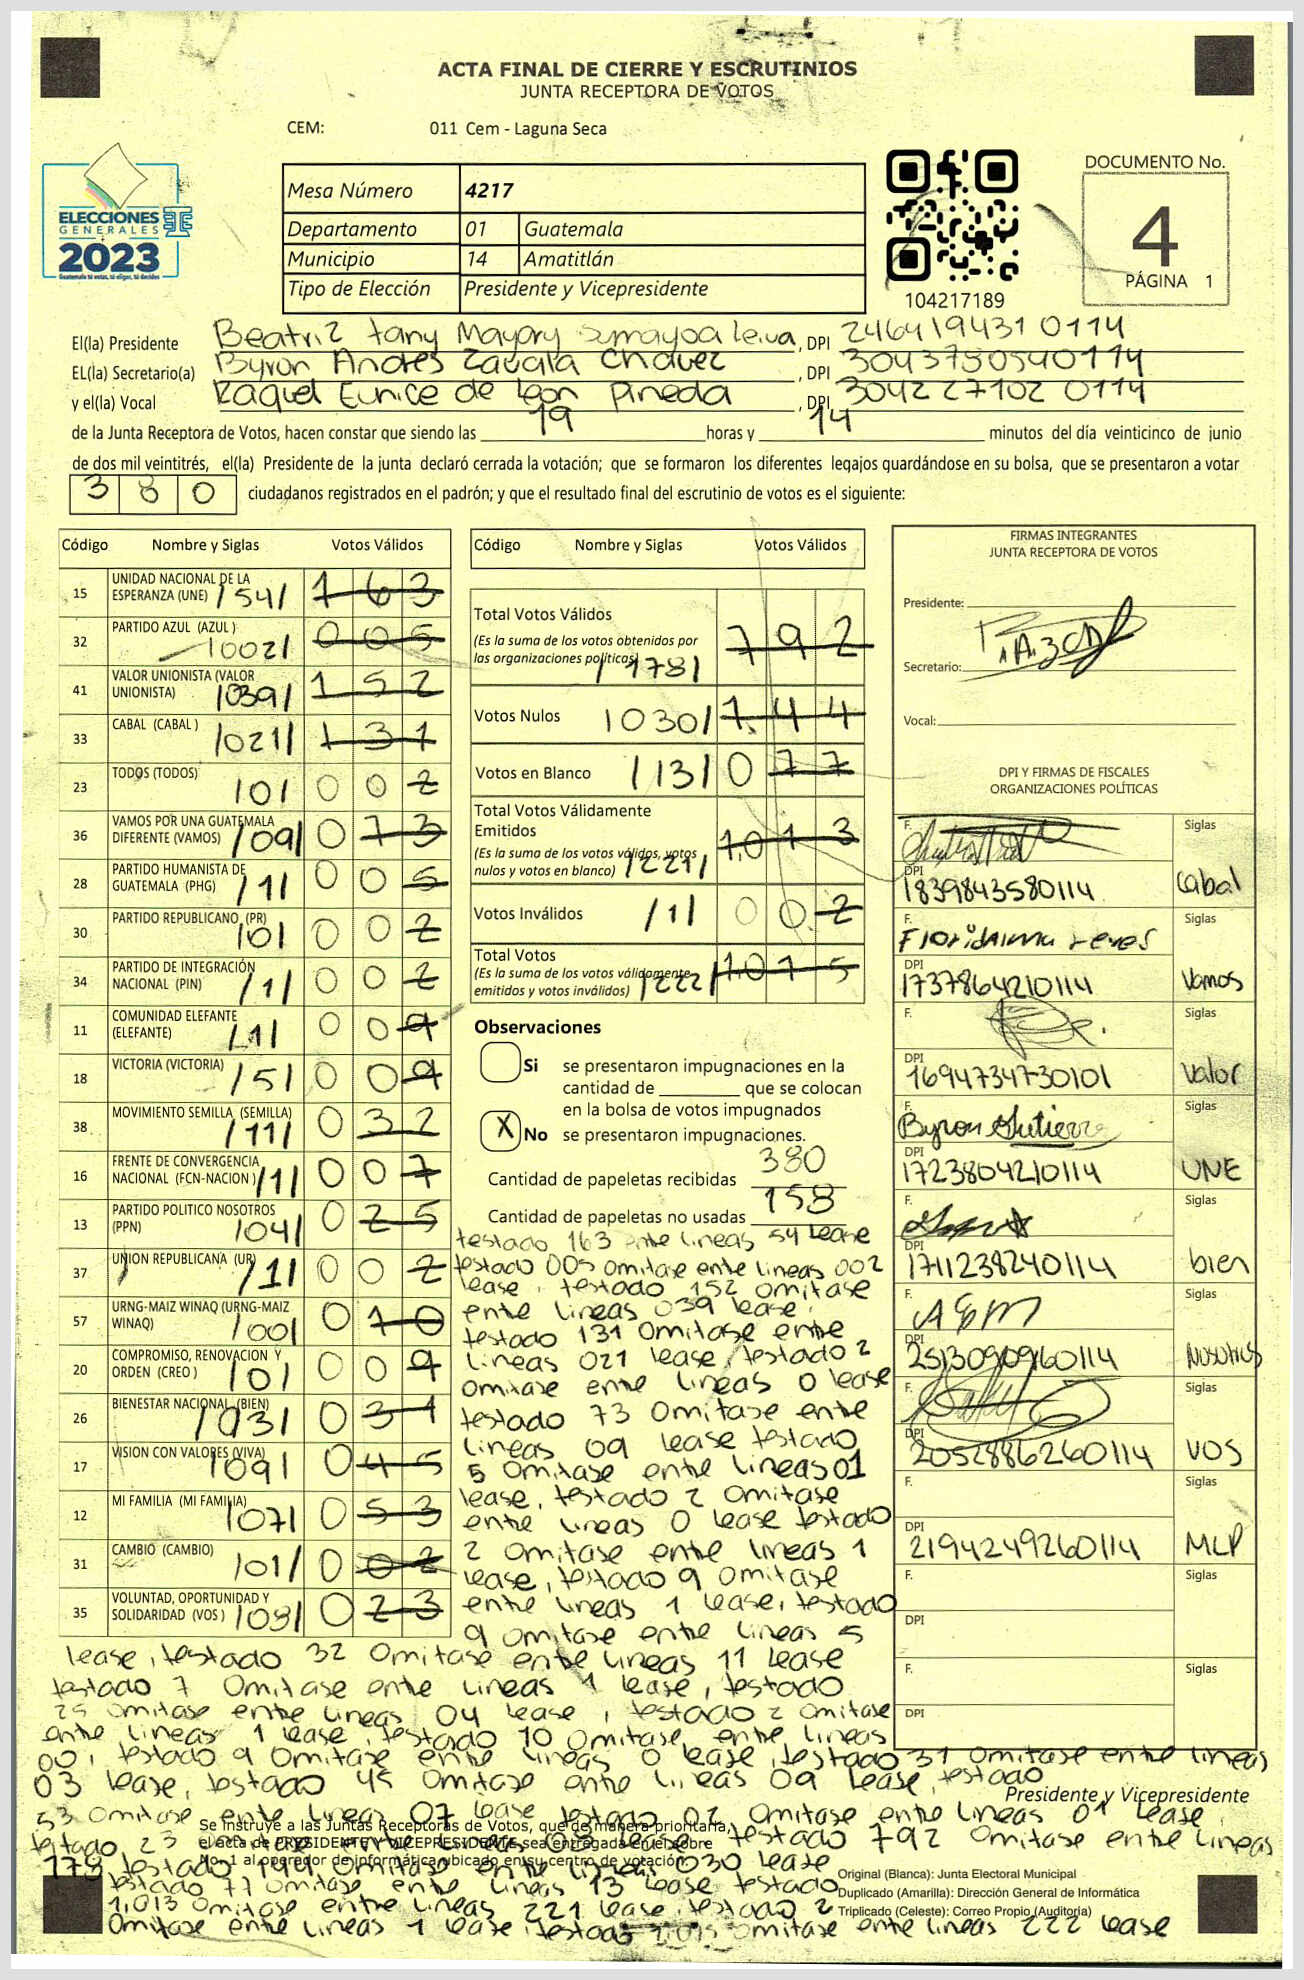 ACTA FINAL DE CIERRE Y ESCRUTINIOS
JUNTA RECEPTORA DE VOTOS
CEM: 011 Cem - Laguna Seca
ELECCIONES
GENERALES
2023
Guatemala tú votas, tú eliges, tú decides
Mesa Número 4217
Departamento 01 Guatemala
Municipio 14 Amatitlán
Tipo de Elección Presidente y Vicepresidente
104217189
DOCUMENTO No.
4
PÁGINA 1
El(la) Presidente Beatriz Mayory Sumayoa Leiva, DPI 2464194310114
EL(la) Secretario(a) Byron Andres Zavala Chavez, DPI 3043780540114
y el(la) Vocal Raquel Eunice de Leon Pineda, DPI 3042271020114
de la Junta Receptora de Votos, hacen constar que siendo las 19 horas y 14 minutos del día veinticinco de junio
de dos mil veintitrés, el(la) Presidente de la junta declaró cerrada la votación; que se formaron los diferentes legajos guardándose en su bolsa, que se presentaron a votar
380 ciudadanos registrados en el padrón; y que el resultado final del escrutinio de votos es el siguiente:
Código Nombre y Siglas Votos Válidos
15 UNIDAD NACIONAL DE LA ESPERANZA (UNE) /54/ 163
32 PARTIDO AZUL (AZUL ) /002/ 005
41 VALOR UNIONISTA (VALOR UNIONISTA) /039/ 152
33 CABAL (CABAL ) /021/ 131
23 TODOS (TODOS) /0/ 002
36 VAMOS POR UNA GUATEMALA DIFERENTE (VAMOS) /09/ 073
28 PARTIDO HUMANISTA DE GUATEMALA (PHG) /1/ 005
30 PARTIDO REPUBLICANO (PR) /0/ 002
34 PARTIDO DE INTEGRACIÓN NACIONAL (PIN) /1/ 002
11 COMUNIDAD ELEFANTE (ELEFANTE) /1/ 009
18 VICTORIA (VICTORIA) /5/ 009
38 MOVIMIENTO SEMILLA (SEMILLA) /11/ 032
16 FRENTE DE CONVERGENCIA NACIONAL (FCN-NACION ) /1/ 007
13 PARTIDO POLITICO NOSOTROS (PPN) /04/ 025
37 UNION REPUBLICANA (UR) /1/ 002
57 URNG-MAIZ WINAQ (URNG-MAIZ WINAQ) /00/ 010
20 COMPROMISO, RENOVACION Y ORDEN (CREO ) /0/ 009
26 BIENESTAR NACIONAL (BIEN) /03/ 031
17 VISION CON VALORES (VIVA) /09/ 045
12 MI FAMILIA (MI FAMILIA) /07/ 053
31 CAMBIO (CAMBIO) /01/ 002
35 VOLUNTAD, OPORTUNIDAD Y SOLIDARIDAD (VOS ) /08/ 023
Código Nombre y Siglas Votos Válidos
Total Votos Válidos
(Es la suma de los votos obtenidos por
las organizaciones políticas) /178/ 792
Votos Nulos /030/ 144
Votos en Blanco /13/ 077
Total Votos Válidamente
Emitidos
(Es la suma de los votos válidos, votos
nulos y votos en blanco) /221/ 1,013
Votos Inválidos /1/ 002
Total Votos
(Es la suma de los votos válidamente
emitidos y votos inválidos) /222/ 1,015
Observaciones
Si se presentaron impugnaciones en la
cantidad de ________ que se colocan
en la bolsa de votos impugnados
X No se presentaron impugnaciones.
Cantidad de papeletas recibidas 380
Cantidad de papeletas no usadas 158
testado 163 entre lineas 54 lease
testado 005 omitase entre lineas 002
lease, testado 152 omitase
entre lineas 039 lease,
testado 131 omitase entre
lineas 021 lease, testado 2
omitase entre lineas 0 lease
testado 73 omitase entre
lineas 09 lease testado
5 omitase entre lineas 01
lease, testado 2 omitase
entre lineas 0 lease testado
2 omitase entre lineas 1
lease, testado 9 omitase
entre lineas 1 lease, testado
9 omitase entre lineas 5
lease, testado 32 omitase entre lineas 11 lease
testado 7 omitase entre lineas 1 lease, testado
25 omitase entre lineas 04 lease, testado 2 omitase
entre lineas 1 lease, testado 10 omitase entre lineas
00, testado 9 omitase entre lineas 0 lease, testado 31 omitase entre lineas
03 lease, testado 45 omitase entre lineas 09 lease, testado
53 omitase entre lineas 07 lease testado 02 omitase entre lineas 01 lease
testado 23 omitase entre lineas 08 lease, testado 792 omitase entre lineas
178 testado 144 omitase entre lineas 030 lease
testado 77 omitase entre lineas 13 lease testado
1,013 omitase entre lineas 221 lease, testado 2
omitase entre lineas 1 lease testado 1,015 omitase entre lineas 222 lease
FIRMAS INTEGRANTES
JUNTA RECEPTORA DE VOTOS
Presidente:
Secretario:
Vocal:
DPI Y FIRMAS DE FISCALES
ORGANIZACIONES POLÍTICAS
F. Siglas
DPI 1839843580114 Cabal
F. Floridalma reyes Siglas
DPI 1737864210114 Vamos
F. Siglas
DPI 1694734730101 Valor
F. Byron Gutierrez Siglas
DPI 1723804210114 UNE
F. Siglas
DPI 1711238240114 bien
F. Siglas
DPI 2513090960114 Nosotros
F. Siglas
DPI 2052886260114 VOS
F. Siglas
DPI 2194249260114 MLP
F. Siglas
DPI
F. Siglas
DPI
Presidente y Vicepresidente
Se instruye a las Juntas Receptoras de Votos, que de manera prioritaria,
el acta de PRESIDENTE Y VICEPRESIDENTE sea entregada en el sobre
No. 1 al operador de informática ubicado en su centro de votación.
Original (Blanca): Junta Electoral Municipal
Duplicado (Amarilla): Dirección General de Informática
Triplicado (Celeste): Correo Propio (Auditoria)